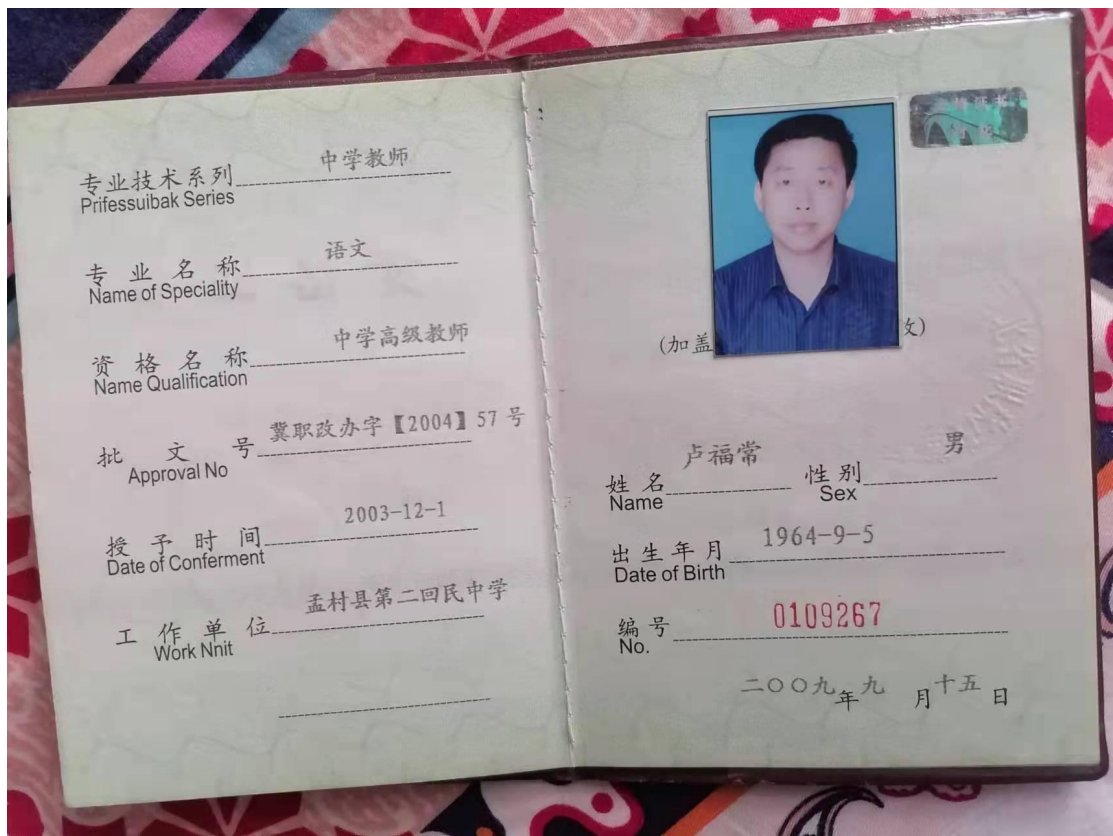 专业技术系列 中学教师
Prifessuibak Series
专业名称 语文
Name of Speciality
资格名称 中学高级教师
Name Qualification
批文号 冀职改办字【2004】57号
Approval No
授予时间 2003-12-1
Date of Conferment
工作单位 孟村县第二回民中学
Work Nnit
(加盖
效)
姓名 卢福常 性别 男
Name Sex
出生年月 1964-9-5
Date of Birth
编号 0109267
No.
二〇〇九年九月十五日